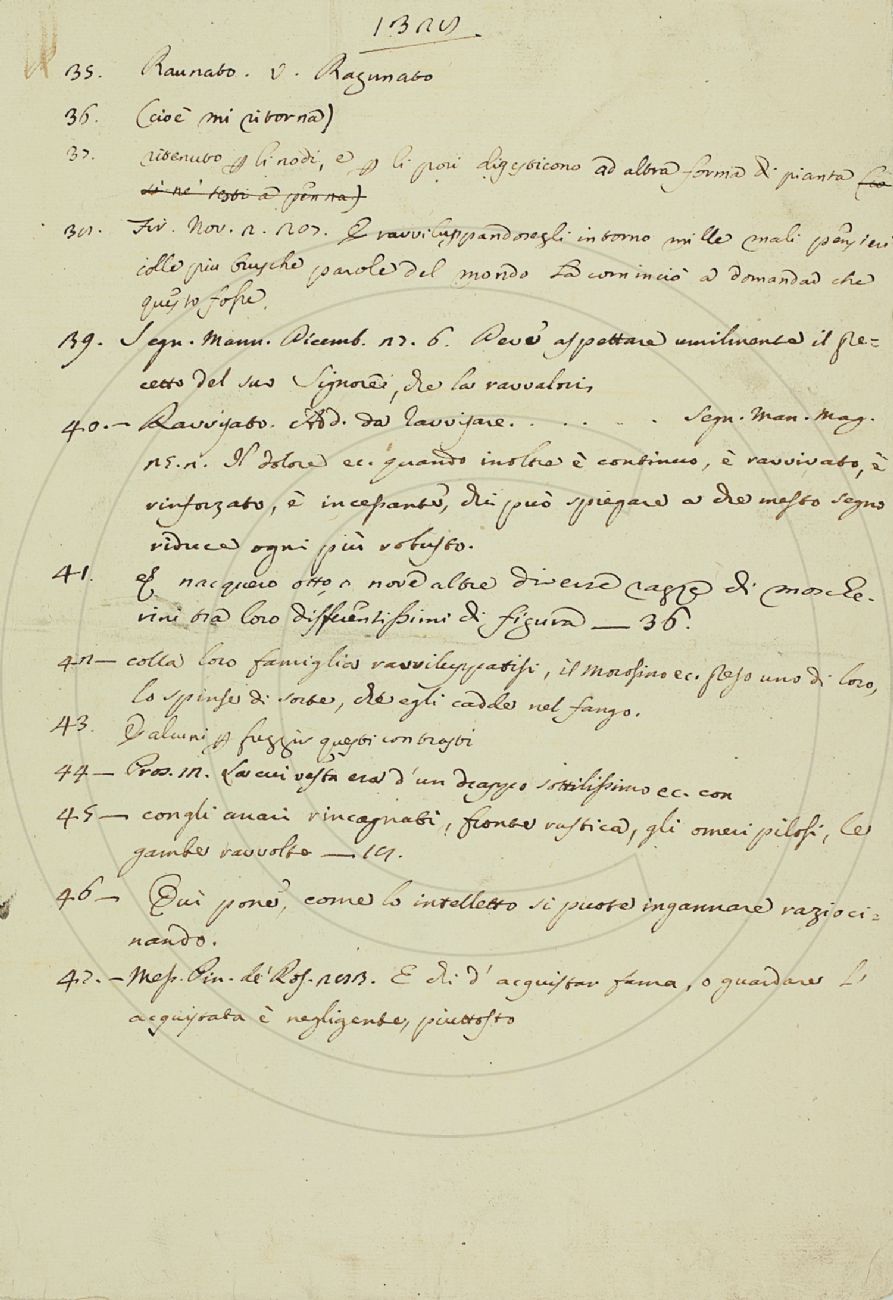 1328.
35. Raunato. V. Ragunato
36. (cioè mi ritorna)
37. ritenuto p li nodi, e p li pori digesticono ad altra forma di pianta (co
sì ne' testi a penna)
38. Fir. Nov. 2. 207. E ravviluppandosegli intorno mille mali pensieri
colle più brusche parole del mondo la cominciò a domandar che
questo fosse.
39. Segn. Mann. Dicemb. 27. 6. Deve aspettare umilmente il Re=
cetto del suo Signore, che la ravvalori,
40. – Ravvisato. Add. da Ravvisare. . . . . . Segn. Man. Mag.
25. 2. Il dolore ec. quando inoltre è continuo, è ravvivato, è
rinforzato, è incessante, chi può spiegare a che mesto segno
riduce ogni più robusto.
41. E nacquero otto, o nove altre diverse razze di mosche-
rini tra loro differentissimi di figura — 36.
42 — colla loro famiglia ravviluppatisi, il Morosino ec. preso uno di loro,
lo spinse di sorte, che egli cadde nel fango.
43. E alcuni p fuggir questi contrasti
44 — Pros. 12. La cui vesta era d'un drappo sottilissimo ec. con
45 — congli anari rincagnati, fronte rustica, gli omeri pilosi, le
gambe ravvolte — 18.
46 — Qui pone, come lo intelletto si puote ingannare razioci=
nando.
47. – Mess. Cin. de' Ros. 283. E chi d'acquistar fama, o guardare l'
acquistata è negligente, piuttosto